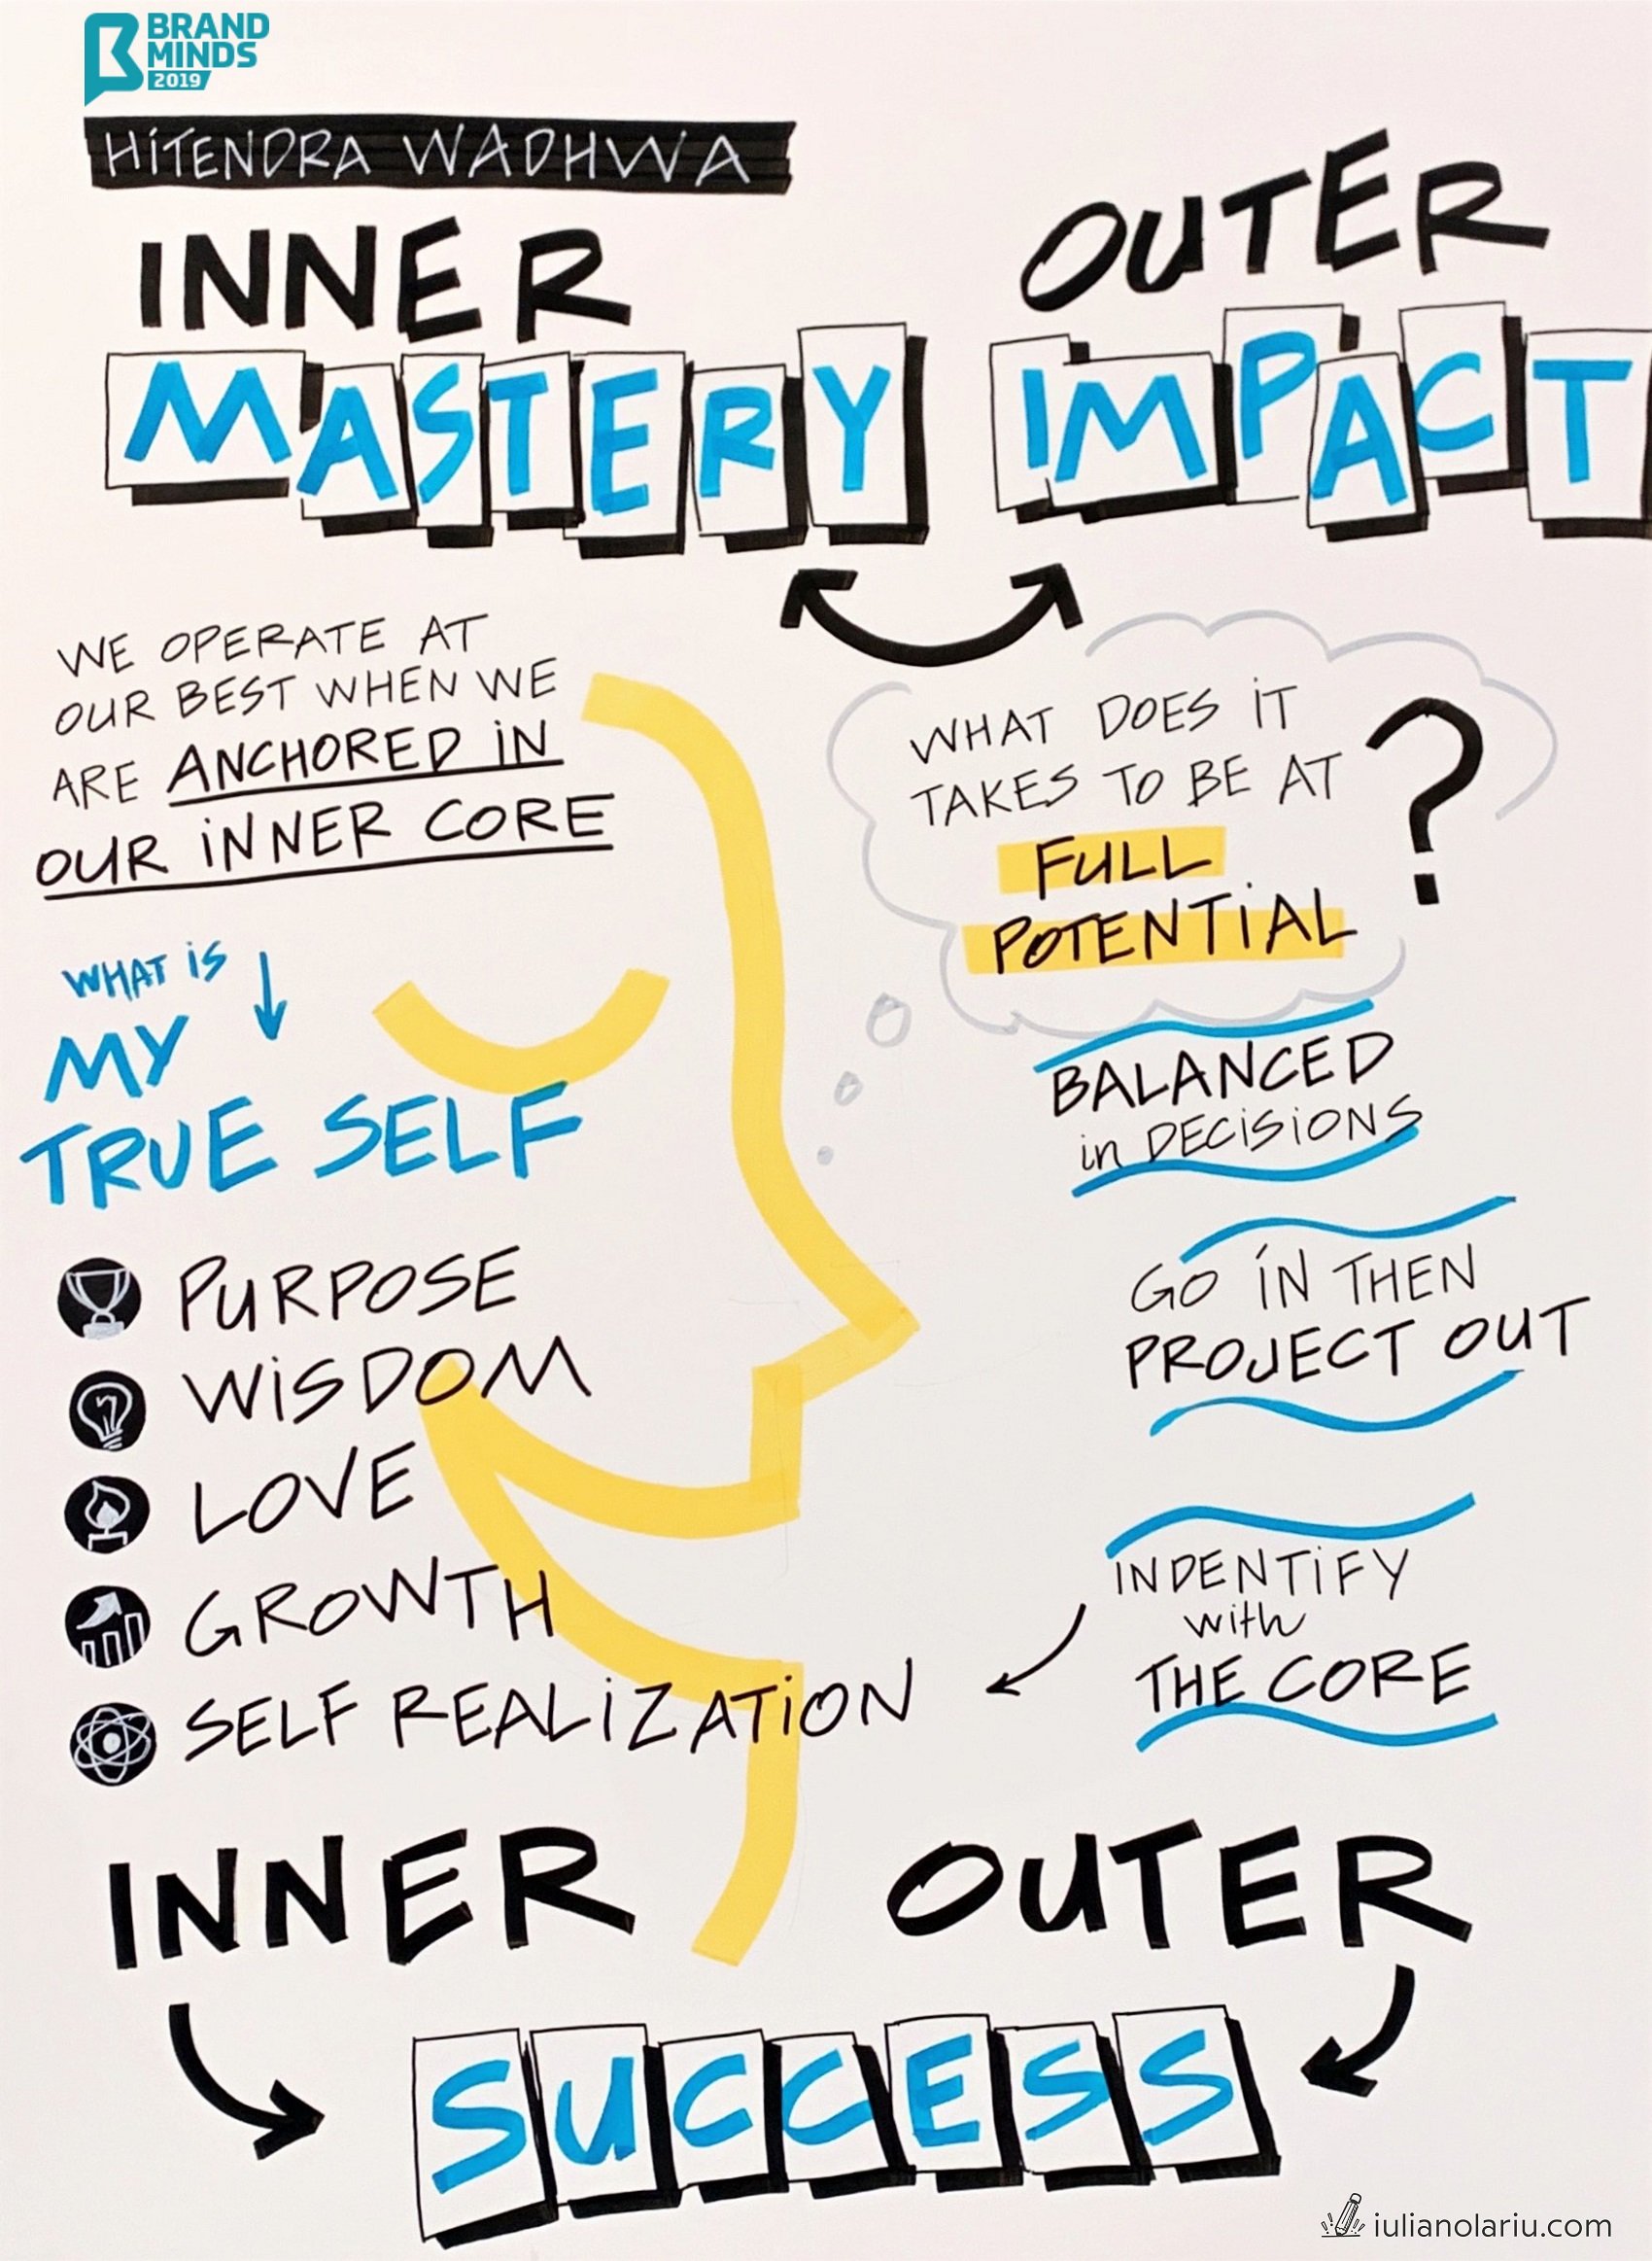 BRAND
MINDS
2019
HiTENDRA WADHWA
INNER
MASTERY
OUTER
IMPACT
WE OPERATE AT
OUR BEST WHEN WE
ARE ANCHORED iN
OUR iNNER CORE
WHAT DOES iT
TAKES TO BE AT
FULL
POTENTiAL
?
WHAT iS
MY
TRUE SELF
BALANCED
in DECiSiONS
PURPOSE
WiSDOM
LOVE
GROWTH
SELF REALiZATiON
GO iN THEN
PROJECT OUT
INDENTiFY
with
THE CORE
INNER
OUTER
SUCCESS
iulianolariu.com